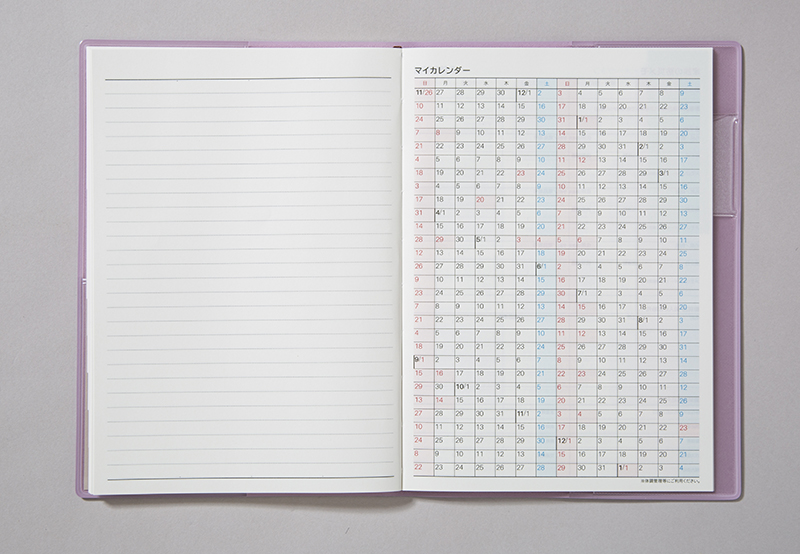 マイカレンダー
日 月 火 水 木 金 土 日 月 火 水 木 金 土
11/26 27 28 29 30 12/1 2 3 4 5 6 7 8 9
10 11 12 13 14 15 16 17 18 19 20 21 22 23
24 25 26 27 28 29 30 31 1/1 2 3 4 5 6
7 8 9 10 11 12 13 14 15 16 17 18 19 20
21 22 23 24 25 26 27 28 29 30 31 2/1 2 3
4 5 6 7 8 9 10 11 12 13 14 15 16 17
18 19 20 21 22 23 24 25 26 27 28 29 3/1 2
3 4 5 6 7 8 9 10 11 12 13 14 15 16
17 18 19 20 21 22 23 24 25 26 27 28 29 30
31 4/1 2 3 4 5 6 7 8 9 10 11 12 13
14 15 16 17 18 19 20 21 22 23 24 25 26 27
28 29 30 5/1 2 3 4 5 6 7 8 9 10 11
12 13 14 15 16 17 18 19 20 21 22 23 24 25
26 27 28 29 30 31 6/1 2 3 4 5 6 7 8
9 10 11 12 13 14 15 16 17 18 19 20 21 22
23 24 25 26 27 28 29 30 7/1 2 3 4 5 6
7 8 9 10 11 12 13 14 15 16 17 18 19 20
21 22 23 24 25 26 27 28 29 30 31 8/1 2 3
4 5 6 7 8 9 10 11 12 13 14 15 16 17
18 19 20 21 22 23 24 25 26 27 28 29 30 31
9/1 2 3 4 5 6 7 8 9 10 11 12 13 14
15 16 17 18 19 20 21 22 23 24 25 26 27 28
29 30 10/1 2 3 4 5 6 7 8 9 10 11 12
13 14 15 16 17 18 19 20 21 22 23 24 25 26
27 28 29 30 31 11/1 2 3 4 5 6 7 8 9
10 11 12 13 14 15 16 17 18 19 20 21 22 23
24 25 26 27 28 29 30 12/1 2 3 4 5 6 7
8 9 10 11 12 13 14 15 16 17 18 19 20 21
22 23 24 25 26 27 28 29 30 31 1/1 2 3 4
※体調管理等にご利用ください。